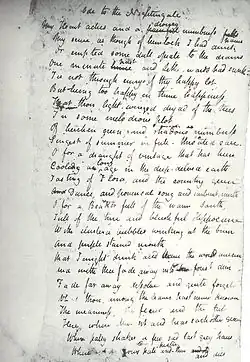 Ode to the Nightingale
My Heart aches and a drowsy numbness falls
My sense as though of hemlock I had drunk
Or emptied some dull opiate to the drains
One minute and Lethe-wards had sunk
Tis not through envy of thy happy lot
But being too happy in thine happiness
That thou light winged dryad of the trees
In some melodious plot
Of beechen green and shadows numberless
Singest of summer in full-throated ease.
O for a draught of vintage that has been
Cooling an age in the deep-delved earth
Tasting of Flora and the country green
And Dance, and provencal song and sunburnt mirth
O for a Beaker full of the warm South
Full of the true and blushful Hippocrene
With cluster'd bubbles winking at the brim
And purple stained mouth
That I might drink and leave the world unseen
And with thee fade away
Fade far away dissolve and quite forget
What thou among the leaves hast never known
The weariness, the fever and the fret
Here, where Men sit and hear each other groan
Where palsy shakes a few sad last grey hairs
Where pale and thin and